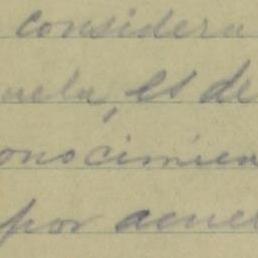 considera
uela, es de
onocimien
por acuer